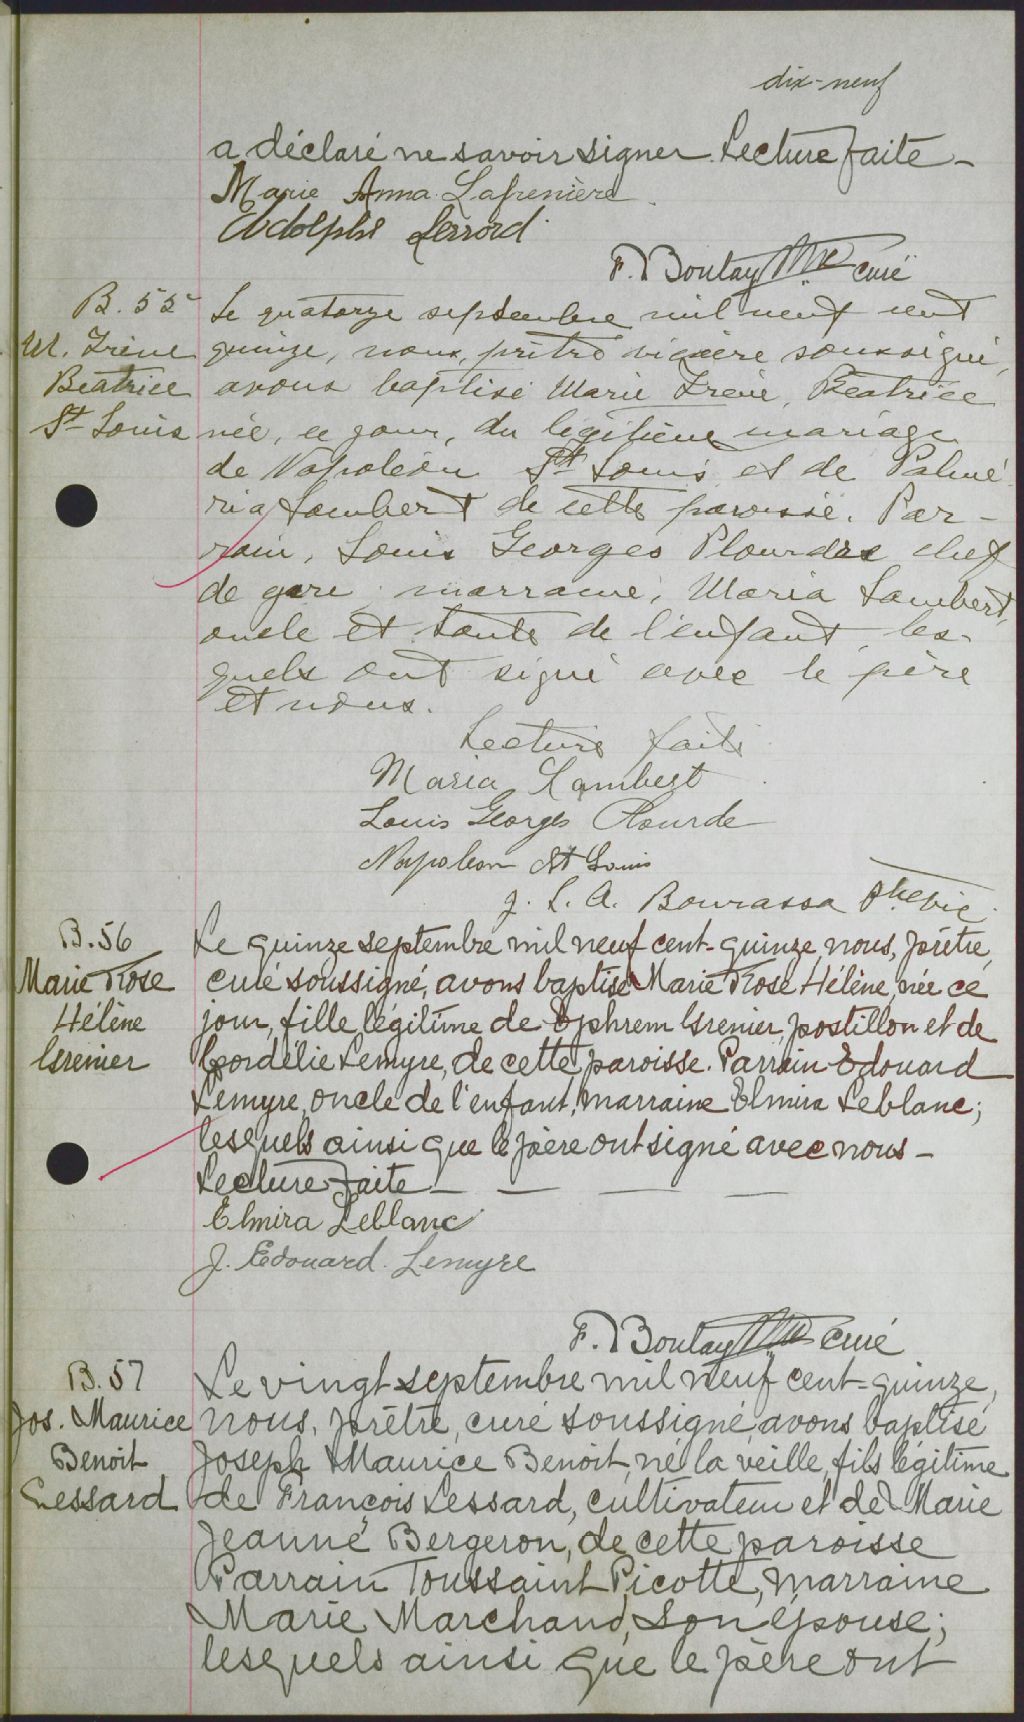 dix-neuf
a déclaré ne savoir signer. Lecture faite -
Marie Anna Lafrenière
Adolphe Lessard
F. Boulay Ptre curé
B. 55
M. Irène
Béatrice
St Louis
Le quatorze septembre mil neuf cent
quinze, nous, prêtre vicaire soussigné,
avons baptisé Marie Irène, Béatrice
née, ce jour, du légitime mariage
de Napoléon St Louis et de Palmé
ria Lambert de cette paroisse. Par-
rain, Louis Georges Plourde chef
de gare, marraine, Maria Lambert,
oncle et tante de l'enfant, les-
quels ont signé avec le père
et nous.
Lecture faite
Maria Lambert
Louis Georges Plourde
Napoleon St Louis
J. L. A. Bourassa Ptre vic
B. 56
Marie Rose
Hélène
Grenier
Le quinze septembre mil neuf cent-quinze, nous, prêtre,
curé soussigné, avons baptisé Marie Rose Hélène, née ce
jour, fille légitime de Ephrem Grenier, postillon et de
Cordélie Lemyre, de cette paroisse. Parrain Edouard
Lemyre, oncle de l'enfant, marraine Elmira Leblanc;
lesquels ainsi que le père ont signé avec nous -
Lecture faite - - - -
Elmira Leblanc
J. Edouard Lemyre
F. Boulay Ptre curé
B. 57
Jos. Maurice
Benoit
Lessard
Le vingt septembre mil neuf cent-quinze,
nous, prêtre, curé soussigné, avons baptisé
Joseph Maurice Benoit, né la veille, fils légitime
de François Lessard, cultivateur et de Marie
Jeanne Bergeron, de cette paroisse
Parrain Toussaint Picotte, marraine
Marie Marchand, son épouse;
lesquels ainsi que le père ont